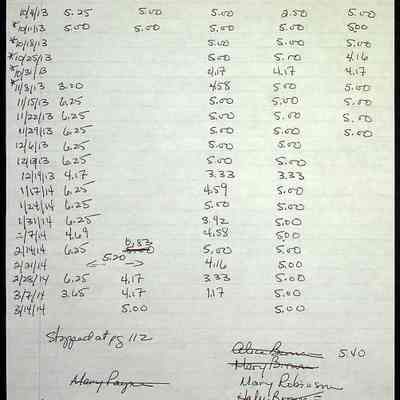 10/4/13 5.25 5.00 5.00 2.50 5.00
*10/11/13 5.00 5.00 5.00 5.00 500
*10/18/13 5.00 5.00 5.00
*10/25/13 5.00 5.00 4.16
*10/31/13 4.17 4.17 4.17
*11/8/13 3.00 4.58 5.00 5.00
11/15/13 6.25 5.00 5.00 5.00
11/22/13 6.25 5.00 5.00 5.00
11/29/13 6.25 5.00 5.00 5.00
12/6/13 6.25 5.00 5.00
12/13/13 6.25 5.00 5.00
12/19/13 4.17 3.33 3.33
1/17/14 6.25 4.59 5.00
1/24/14 6.25 5.00 5.00
1/31/14 6.25 3.92 5.00
2/7/14 4.69 4.58 500
2/14/14 6.25 5.83 5.00 5.00 5.00
2/21/14 5.20 4.16 5.00
2/28/14 6.25 4.17 3.33 5.00
3/7/14 3.65 4.17 1.17 5.00
3/14/14 5.00 5.00
Stopped at pg 112
Alice Brown 5.40
Mary Brown
Mary Payne Mary Robinson